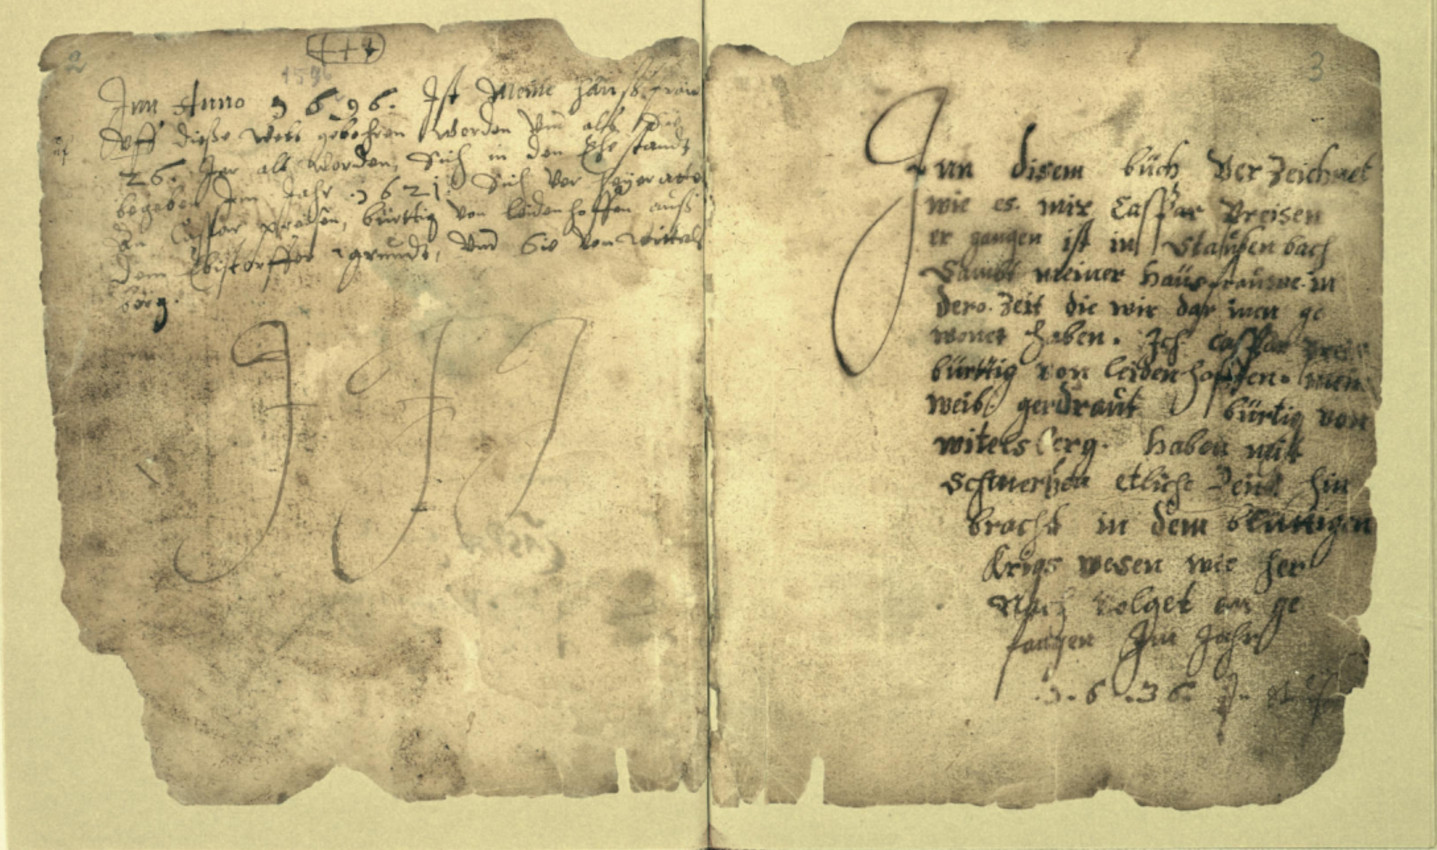 2
1596
Inn Anno 1696. Ist Meine haußfrau
Vff dieße welt gebohren worden Vnd alß
26. Jar alt worden, Sich in den Ehe standt
begeben Im Jahr 1621 Sich Ver heyerat
an Caspar Preisen, bürttig von leidenhoffen auß
dem Ebstorffer grundt, Vnd Sie Von wittels
berg.
3
Inn disem büch Verzeichnet
wie es mir Caspar Preisen
er gangen ist in Stausenbach
Sambt meiner Haüsfrauwe in
dero Zeit die wir dar inen ge
wonet haben. Ich Caspar Preis
bürttig von leidenhoffen. mein
weib gerdraut bürtig von
witelsberg. Haben mit
Schmerzen etliche Zeit hin
bracht in dem blüttigen
Krigs wesen wie her
Nach volget an ge
fangen Im Jahr
1636